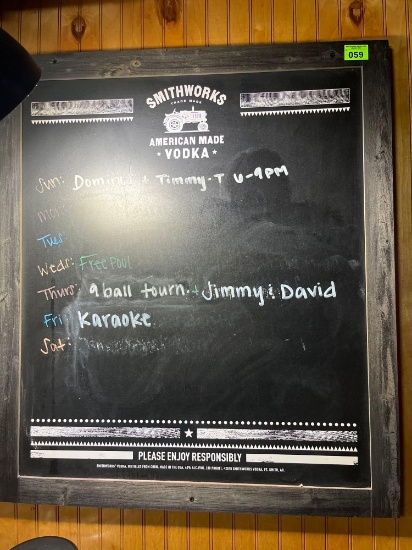 059
SMITHWORKS
TRADE MARK
AMERICAN MADE
VODKA
Sun: + Timmy-T 6-9PM
Mon:
Tues:
Weds: Free Pool
Thurs: 9 ball tourn. + Jimmy & David
Fri: Karaoke
Sat:
PLEASE ENJOY RESPONSIBLY